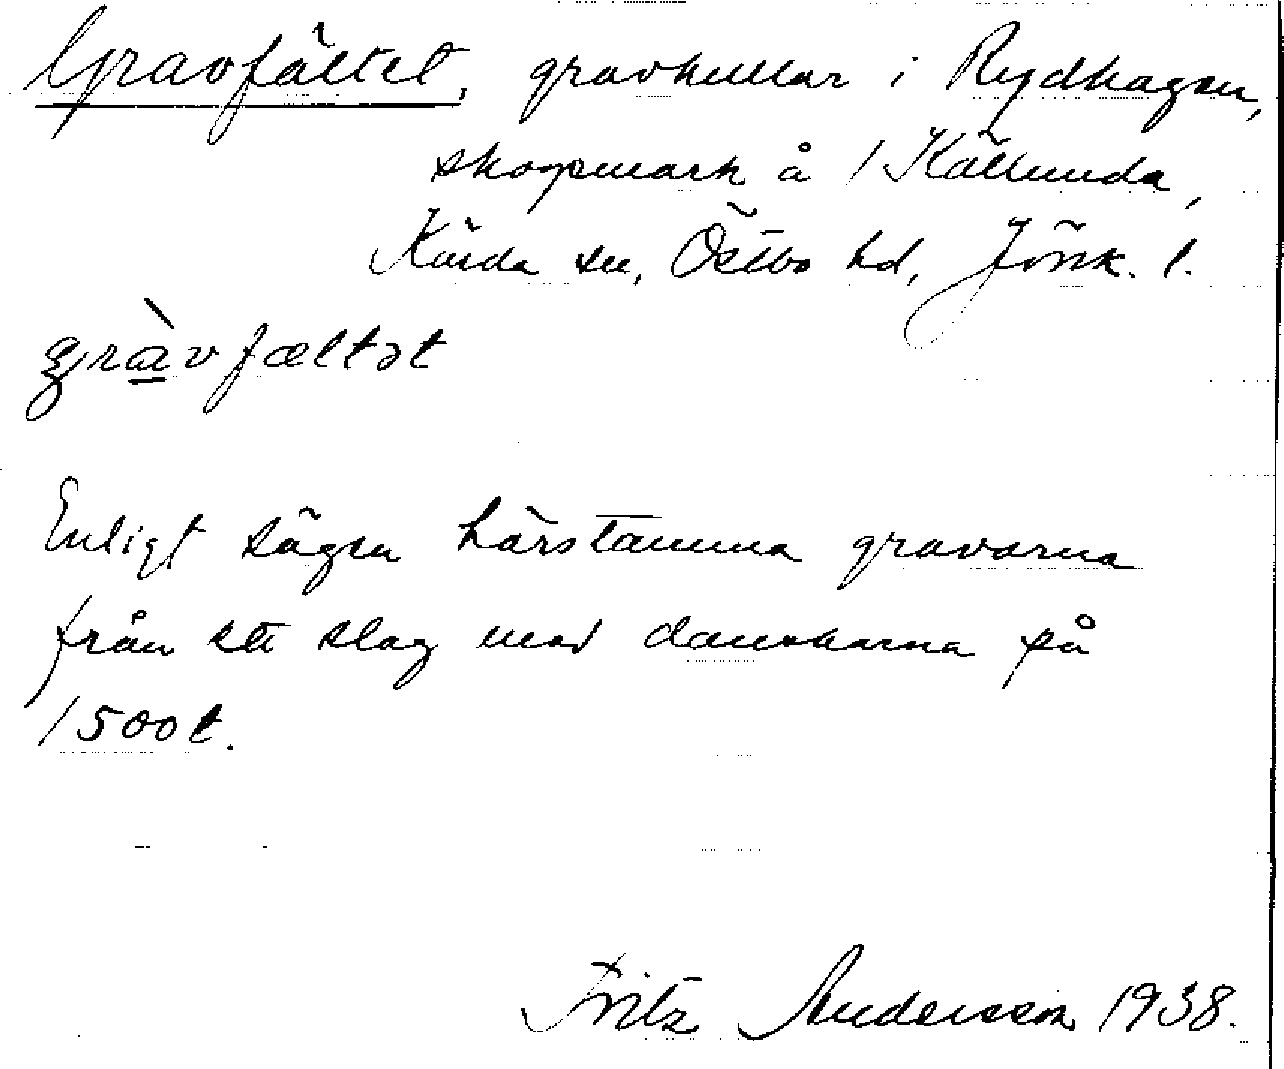 Gravfältet, gravkullar i Rydhagen,
skogsmark å / Källunda,
Kärda sn, Östbo hd, Jönk. l.
gràvfæltət
Enligt sägen härstamma gravarna
från ett slag med danskarna på
1500t.
Fritz Andersson 1938.